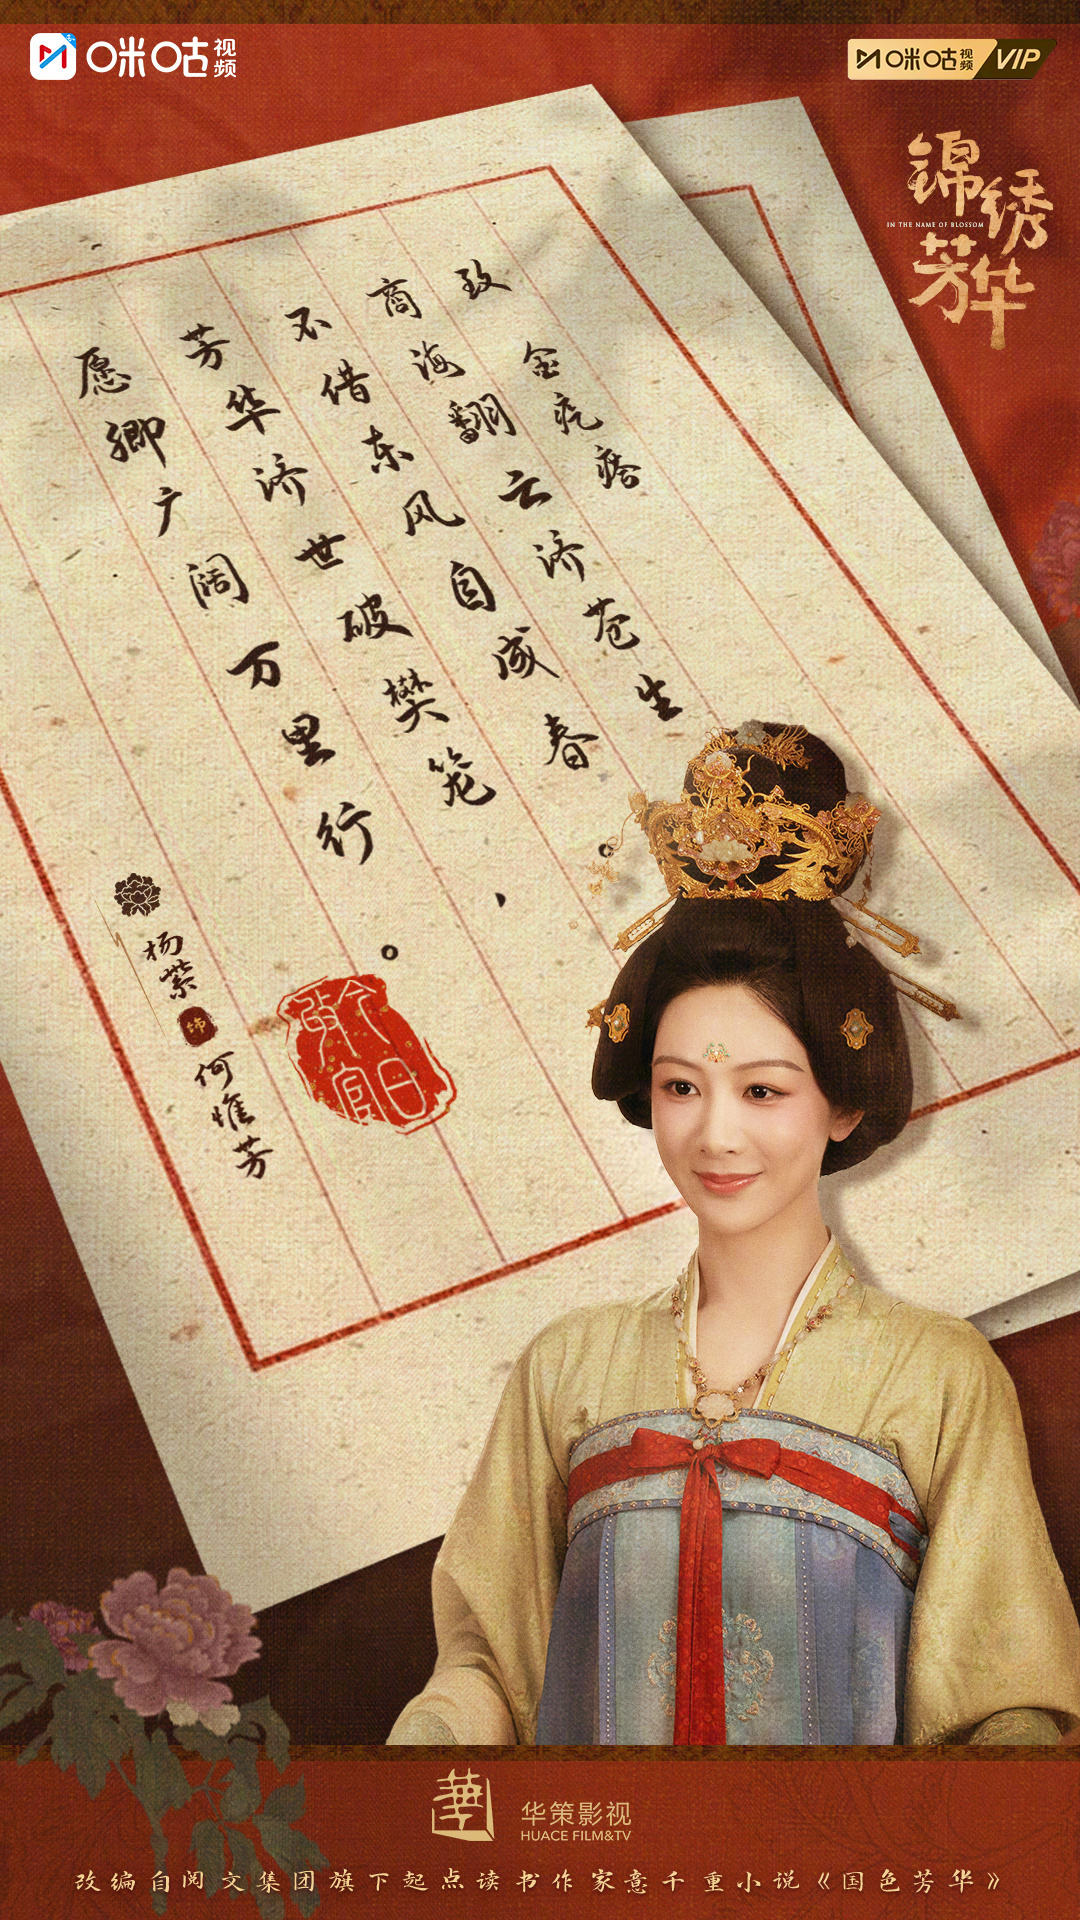 咪咕视频
咪咕视频 VIP
锦绣芳华
IN THE NAME OF BLOSSOM
致
金疙瘩
商海翻云济苍生
不借东风自成春。
芳华济世破樊笼、
愿卿广阔万里行。
杨紫
饰
何惟芳
今日
华策影视
HUACE FILM&TV
改编自阅文集团旗下起点读书作家意千重小说《国色芳华》